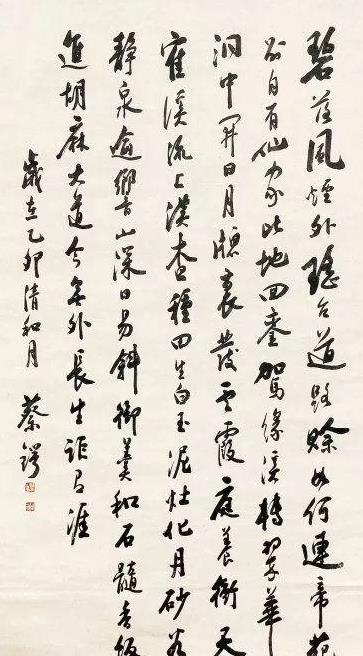 碧落風煙外瑤台道路賒如何連帝苑
別自有仙家此地回鑾駕緣溪轉翠華
洞中開日月牕裏發雲霞庭養衝天
隺溪流上漢查種田生白玉泥灶化丹砂谷
靜泉逾響山深日易斜御羹和石髓香飯
進胡麻大道今無外長生詎有涯
歲在乙卯清和月 蔡鍔